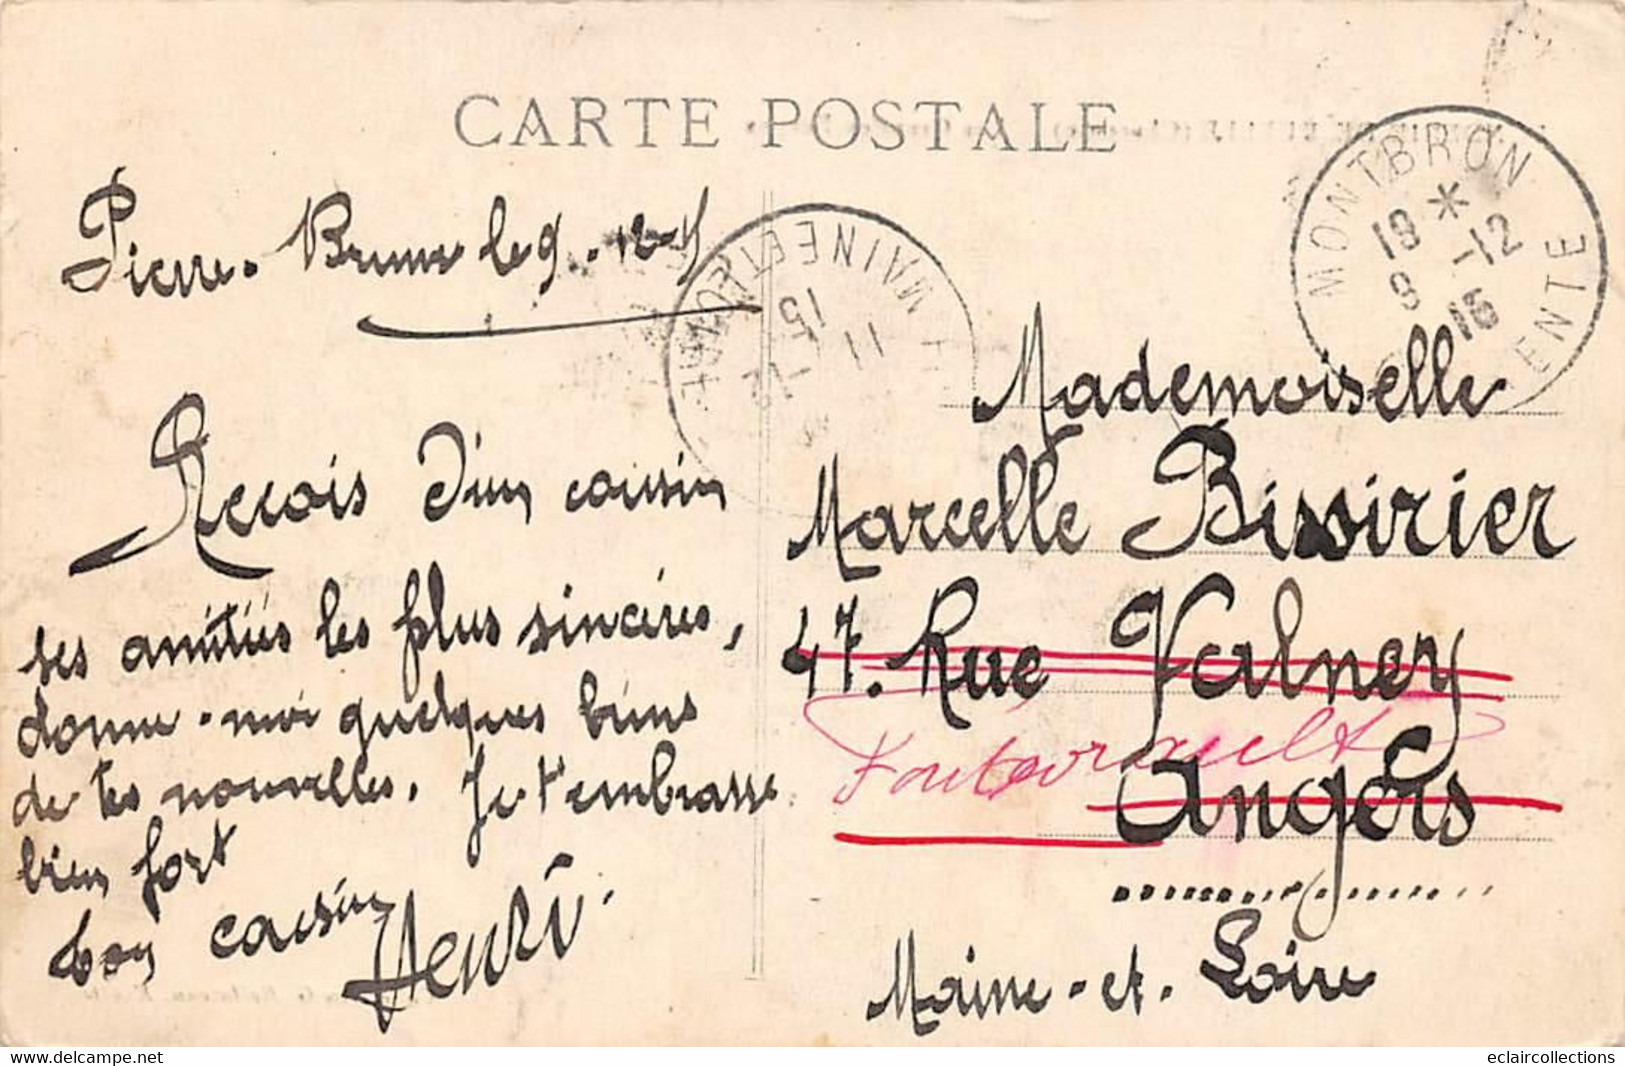 CARTE POSTALE
Pierre-Brune le 9-12-15
Reçois d'un cousin
ses amitiés les plus sincères,
donne-moi quelques biens
de tes nouvelles. Je t'embrasse
bien fort
ton cousin
Henri
MONTBRON
18 * 9 -12 15
ENTE
MAINE ET LOIRE
11 -12 15
Mademoiselle
Marcelle Bissirier
47. Rue Valney
Fontevrault
Angers
Maine-et-Loire
eclaircollections